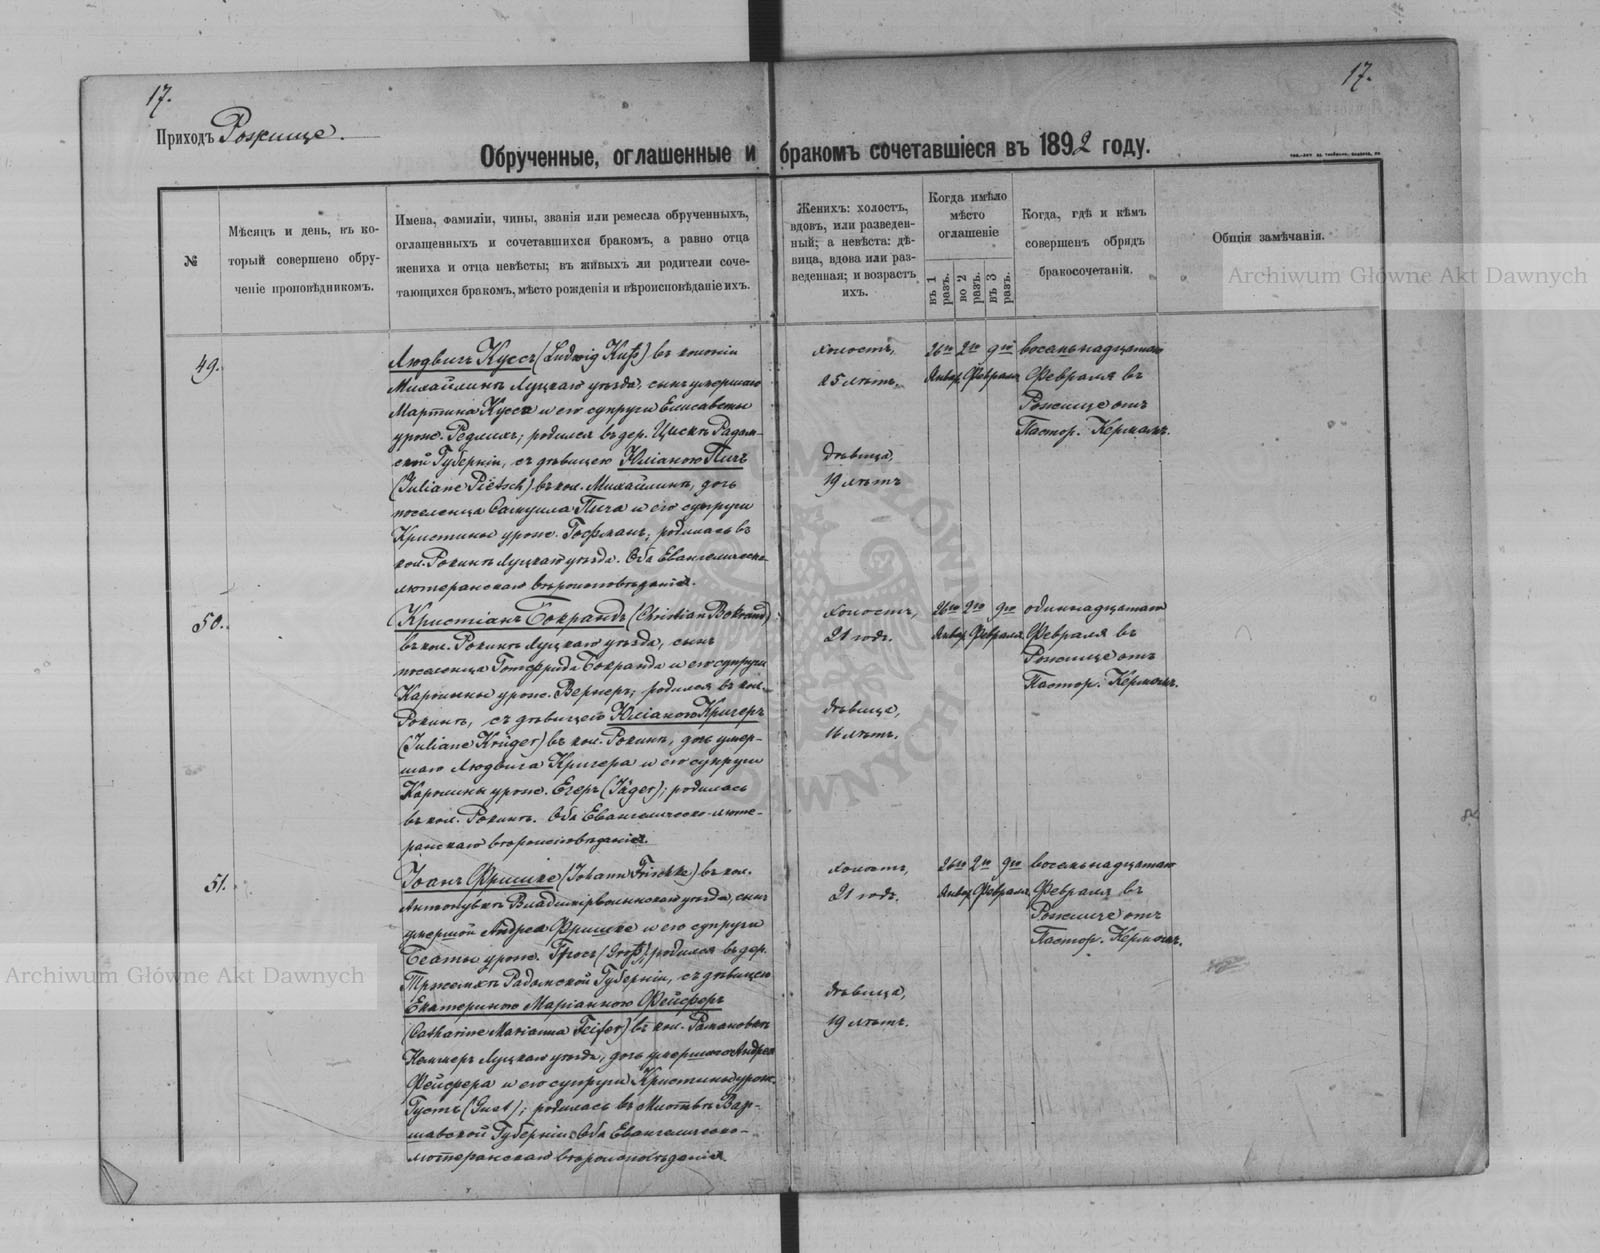 17.
17.
Приходъ Рожище.
Обрученные, оглашенные и бракомъ сочетавшіеся въ 1892 году.
№
Мѣсяцъ и день, въ ко-
торый совершено обру-
ченіе проповѣдникомъ.
Имена, фамиліи, чины, званія или ремесла обрученныхъ,
оглашенныхъ и сочетавшихся бракомъ, а равно отца
жениха и отца невѣсты; въ живыхъ ли родители соче-
тающихся бракомъ, мѣсто рожденія и вѣроисповѣданіе ихъ.
Женихъ: холостъ,
вдовъ, или разведен-
ный; а невѣста: дѣ-
вица, вдова или раз-
веденная; и возрастъ
ихъ.
Когда имѣло
мѣсто
оглашеніе
въ 1 разъ.
во 2 разъ.
въ 3 разъ.
Когда, гдѣ и кѣмъ
совершенъ обрядъ
бракосочетанія.
Общія замѣчанія.
49.
Людвигъ Куссъ (Ludwig Kuß) въ колоніи
Михайлинъ Луцкаго уѣзда, сынъ умершаго
Мартина Кусса и его супруги Елисаветы
урож. Редлихъ; родился въ дер. Цискъ Радом-
ской Губерніи, съ дѣвицею Юліаною Пичъ
(Juliane Pietsch) въ кол. Михайлинъ, дочь
поселенца Самуила Пича и его супруги
Кристины урож. Гофманъ; родилась въ
кол. Рокинъ Луцкаго уѣзда. Оба Евангелическо-
лютеранскаго вѣроисповѣданія.
холостъ,
25 лѣтъ,
дѣвица,
19 лѣтъ
26го 2го 9го
Январ. Февраля
восемьнадцатаго
Февраля въ
Рожище отъ
Пастор. Керманъ.
50.
Кристіанъ Бокрандъ (Christian Bokrand)
въ кол. Рокинъ Луцкаго уѣзда, сынъ
поселенца Готфрида Бокранда и его супруги
Каролины урож. Вернеръ; родился въ кол.
Рокинъ, съ дѣвицею Юліаною Кригеръ
(Juliane Krüger) въ кол. Рокинъ, дочь умер-
шаго Людвига Кригера и его супруги
Каролины урож. Егеръ (Jäger); родилась
въ кол. Рокинъ. Оба Евангелическо-люте-
ранскаго вѣроисповѣданія.
холостъ,
21 годъ.
дѣвица,
16 лѣтъ.
26го 2го 9го
Январ. Февраля
одиннадцатаго
Февраля въ
Рожище отъ
Пастор. Керманъ.
51.
Іоанъ Фришке (Johann Frischke) въ кол.
Антоновкѣ Владимірволынскаго уѣзда, сынъ
умершой Андрея Фришке и его супруги
Беаты урож. Гросъ (Groß), родился въ дер.
Радомской Губерніи, съ дѣвицею
Екатериною Маріанною Фейсферъ
(Catharine Marianna Feifer) въ кол. Романовкѣ
Луцкаго уѣзда, дочь умершаго Андрея
Фейсфера и его супруги Кристины урож.
Густъ (Gust); родилась въ Вар-
шавской Губерніи. Оба Евангелическо-
лютеранскаго вѣроисповѣданія.
холостъ,
21 годъ.
дѣвица,
19 лѣтъ.
26го 2го 9го
Январ. Февраля
восемьнадцатаго
Февраля въ
Рожище отъ
Пастор. Керманъ.
Archiwum Główne Akt Dawnych
Archiwum Główne Akt Dawnych